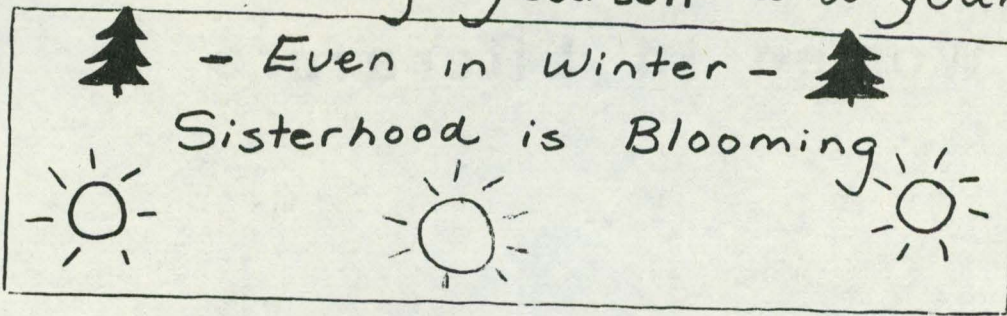 - Even in Winter -
Sisterhood is Blooming